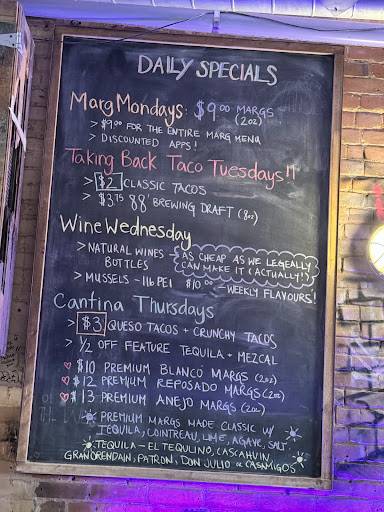 DAILY SPECIALS
Marg Mondays: $9.00 MARGS (2oz)
> $9.00 FOR THE ENTIRE MARG MENU
> DISCOUNTED APPS!
Taking Back Taco Tuesdays!!
> $2 CLASSIC TACOS
> $3.75 88' BREWING DRAFT (8oz)
Wine Wednesday
> NATURAL WINES - AS CHEAP AS WE LEGEALLY
BOTTLES CAN MAKE IT (ACTUALLY!)
> MUSSELS - 1lb PEI $10.00 - WEEKLY FLAVOURS!
Cantina Thursdays
> $3 QUESO TACOS + CRUNCHY TACOS
> 1/2 OFF FEATURE TEQUILA + MEZCAL
♡ $10 PREMIUM BLANCO MARGS (2oz)
♡ $12 PREMIUM REPOSADO MARGS (2oz)
♡ $13 PREMIUM ANEJO MARGS (2oz)
PREMIUM MARGS MADE CLASSIC W/
TEQUILA, COINTREAU, LIME, AGAVE, SALT.
TEQUILA - EL TEQUILINO, CASCAHUIN,
GRAN ORENDAIN, PATRON, DON JULIO or CASAMIGOS